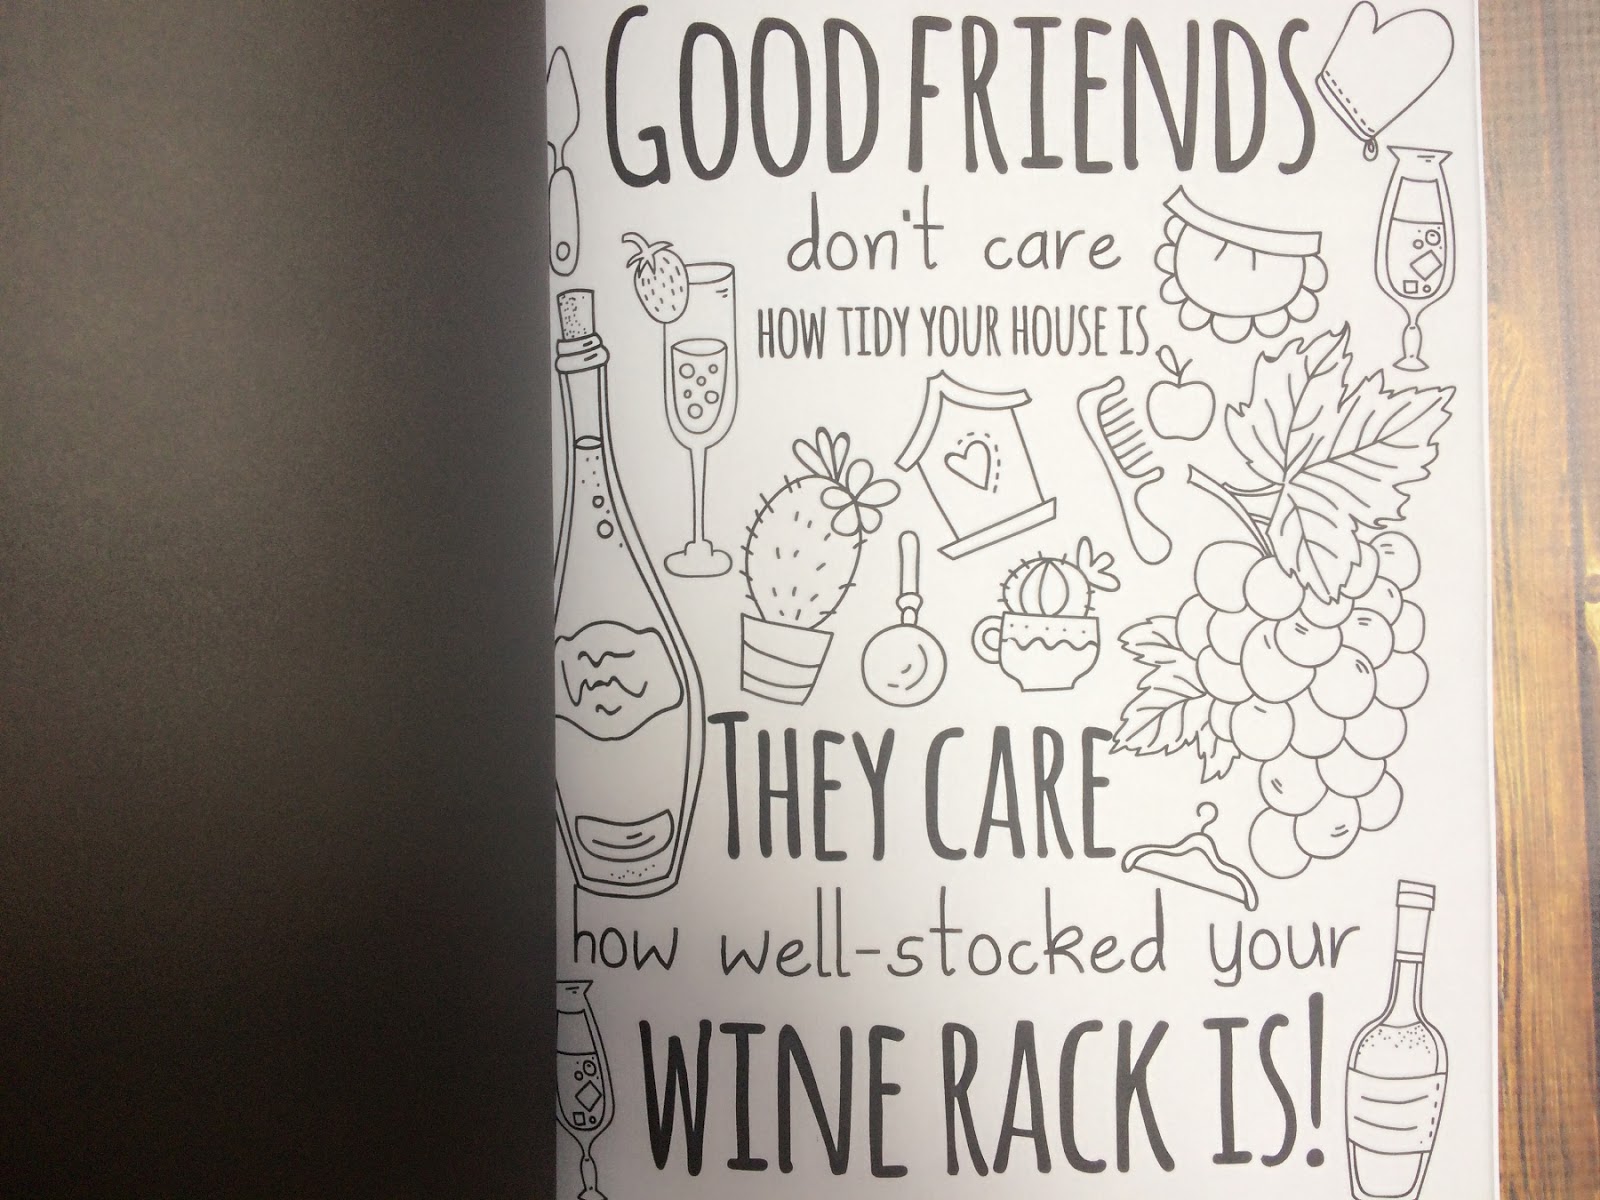 GOOD FRIENDS
don't care
HOW TIDY YOUR HOUSE IS
THEY CARE
how well-stocked your
WINE RACK IS!